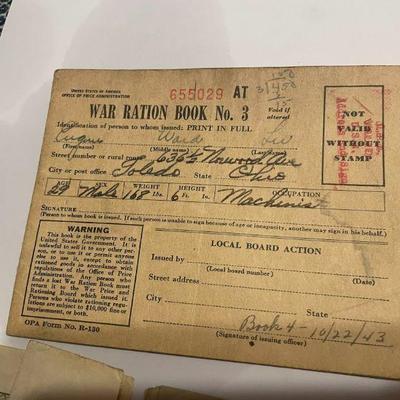 UNITED STATES OF AMERICA
OFFICE OF PRICE ADMINISTRATION
655029 AT
Void if
altered
WAR RATION BOOK No. 3
Identification of person to whom issued: PRINT IN FULL
Ward
(First name) (Middle name) (Last name)
Street number or rural route 636½ Norwood Ave
City or post office Toledo State Ohio
AGE SEX WEIGHT HEIGHT OCCUPATION
Male 168 Lbs. 6 Ft. In. Machinist
SIGNATURE
(Person to whom book is issued. If such person is unable to sign because of age or incapacity, another may sign in his behalf.)
NOT
VALID
WITHOUT
STAMP
WARNING
This book is the property of the
United States Government. It is
unlawful to sell it to any other per-
son, or to use it or permit anyone
else to use it, except to obtain
rationed goods in accordance with
regulations of the Office of Price
Administration. Any person who
finds a lost War Ration Book must
return it to the War Price and
Rationing Board which issued it.
Persons who violate rationing
regulations are subject to $10,000 fine
or imprisonment, or both.
OPA Form No. R-130
LOCAL BOARD ACTION
Issued by
(Local board number) (Date)
Street address
City State
Book 4 - 10/22/43
(Signature of issuing officer)